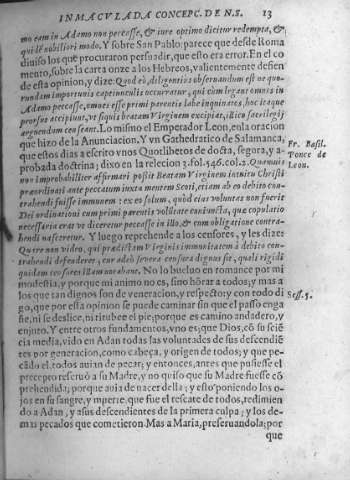 INMACVLADA CONCEPC. DE N.S. 13
mo eam in Adamo non peccasse, & iure optimo dicitur redempta, &
quidẽ nobiliori modo. Y sobre San Pablo, parece que desde Roma
diuisò los que procuraron persuadir, que esto era error. En el co
mento, sobre la carta onze a los Hebreos, valientemente defien
de esta opinion, y dize: Quod eò diligentius obseruandum est ne quo-
rundam importunis captiunculis occurratur, qui cum legant omnis in
Adamo peccasse, omnes esse primi parentis labe inquinatos, hoc itaque
prorsus accipiunt, vt si quis beatam Virginem excipiat, illico sacrilegij
arguendum censeant. Lo mismo el Emperador Leon, en la oracion
que hizo de la Anunciacion. Y vn Cathedratico de Salamanca,
que estos dias a escrito vnos Quolibetos de docta, segura, y a-
probada doctrina; dixo en la relecion 2. fol. 546. col. 2. Quamuis
non improbabiliter affirmari possit Beatam Virginem intuitu Christi
præordinati ante peccatum iuxta mentem Scoti, etiam ab eo debito con-
trahendi fuisse immunem: ex eo solum, quòd eius voluntas non fuerit
Dei ordinationi cum primi parentis volũtate coniuncta, que copulatio
necessaria erat vt diceretur peccasse in illo, & cum obligatione contra-
hendi nasceretur. Y luego reprehende a los censores, y les dize:
Quare non video, qui prædictam Virginis immunitatem à debito con-
trahendi defenderet, cur adeò seuera censura dignus sit, quali rigidi
quidam censores illam notabant. No lo bueluo en romance por mi
modestia, y porque mi animo no es, sino hõrar a todos; y mas a
los que tan dignos son de veneracion, y respecto; y con todo di
go, que por esta opinion se puede caminar sin que el passo enga
ñe, ni se deslice, ni titubee el pie; porque es camino andadero, y
enjuto. Y entre otros fundamentos, vno es; que Dios, cõ su sciẽ
cia media, vido en Adan todas las voluntades de sus descendiẽ
tes por generacion, como cabeça, y origen de todos; y que pe-
cãdo el, todos auian de pecar; y entonces, antes que pusiesse el
precepto reseruò a su Madre, y no quiso que su Madre fuesse cõ
prehendida; porque auia de nacer della; y esto poniendo los o-
jos en su sangre, y muerte, que fue el rescate de todos, redimien
do a Adan, y a sus descendientes de la primera culpa; y los de-
mas pecados que cometieron. Mas a Maria, preseruandola; por
que
Fr. Basil.
Ponce de
Leon.